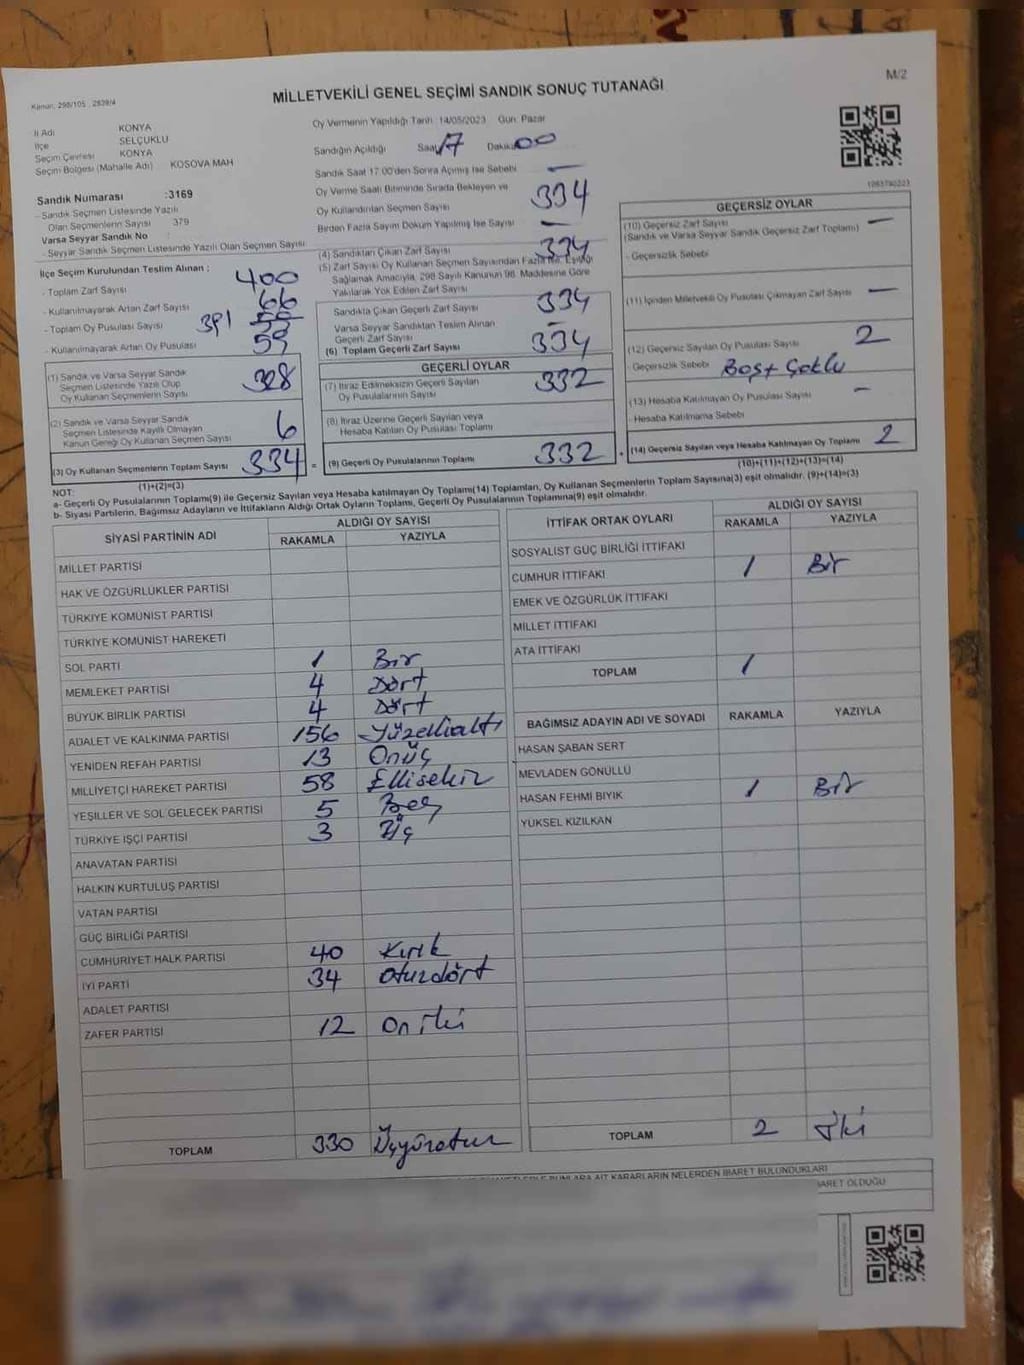 M/2
Kanun: 298/105 , 2839/4
MİLLETVEKİLİ GENEL SEÇİMİ SANDIK SONUÇ TUTANAĞI
İl Adı KONYA
İlçe SELÇUKLU
Seçim Çevresi KONYA
Seçim Bölgesi (Mahalle Adı) KOSOVA MAH
Sandık Numarası :3169
- Sandık Seçmen Listesinde Yazılı
Olan Seçmenlerin Sayısı 379
Varsa Seyyar Sandık No :
- Seyyar Sandık Seçmen Listesinde Yazılı Olan Seçmen Sayısı
Oy Vermenin Yapıldığı Tarih :14/05/2023 Gün: Pazar
Sandığın Açıldığı Saat 17 Dakika 00
Sandık Saat 17.00'den Sonra Açılmış İse Sebebi —
Oy Verme Saati Bitiminde Sırada Bekleyen ve
Oy Kullandırılan Seçmen Sayısı 334
Birden Fazla Sayım Döküm Yapılmış İse Sayısı —
İlçe Seçim Kurulundan Teslim Alınan :
- Toplam Zarf Sayısı 400
- Kullanılmayarak Artan Zarf Sayısı 66
- Toplam Oy Pusulası Sayısı 391
- Kullanılmayarak Artan Oy Pusulası 59
(1) Sandık ve Varsa Seyyar Sandık
Seçmen Listesinde Yazılı Olup
Oy Kullanan Seçmenlerin Sayısı 328
(2) Sandık ve Varsa Seyyar Sandık
Seçmen Listesinde Kayıtlı Olmayan
Kanun Gereği Oy Kullanan Seçmen Sayısı 6
(3) Oy Kullanan Seçmenlerin Toplam Sayısı 334 =
(1)+(2)=(3)
(4) Sandıktan Çıkan Zarf Sayısı 334
(5) Zarf Sayısı Oy Kullanan Seçmen Sayısından Fazla İse, Eşitliği
Sağlamak Amacıyla, 298 Sayılı Kanunun 98. Maddesine Göre
Yakılarak Yok Edilen Zarf Sayısı
Sandıkta Çıkan Geçerli Zarf Sayısı 334
Varsa Seyyar Sandıktan Teslim Alınan
Geçerli Zarf Sayısı —
(6) Toplam Geçerli Zarf Sayısı 334
GEÇERLİ OYLAR
(7) İtiraz Edilmeksizin Geçerli Sayılan
Oy Pusulalarının Sayısı 332
(8) İtiraz Üzerine Geçerli Sayılan veya
Hesaba Katılan Oy Pusulası Toplamı
(9) Geçerli Oy Pusulalarının Toplamı 332 +
1263790223
GEÇERSİZ OYLAR
(10) Geçersiz Zarf Sayısı —
(Sandık ve Varsa Seyyar Sandık Geçersiz Zarf Toplamı)
- Geçersizlik Sebebi
(11) İçinden Milletvekili Oy Pusulası Çıkmayan Zarf Sayısı —
(12) Geçersiz Sayılan Oy Pusulası Sayısı 2
- Geçersizlik Sebebi Boş+Çoklu
(13) Hesaba Katılmayan Oy Pusulası Sayısı —
- Hesaba Katılmama Sebebi
(14) Geçersiz Sayılan veya Hesaba Katılmayan Oy Toplamı 2
(10)+(11)+(12)+(13)=(14)
NOT:
a- Geçerli Oy Pusulalarının Toplamı(9) ile Geçersiz Sayılan veya Hesaba katılmayan Oy Toplamı(14) Toplamları, Oy Kullanan Seçmenlerin Toplam Sayısına(3) eşit olmalıdır. (9)+(14)=(3)
b- Siyasi Partilerin, Bağımsız Adayların ve İttifakların Aldığı Ortak Oyların Toplamı, Geçerli Oy Pusulalarının Toplamına(9) eşit olmalıdır.
SİYASİ PARTİNİN ADI ALDIĞI OY SAYISI
RAKAMLA YAZIYLA
MİLLET PARTİSİ
HAK VE ÖZGÜRLÜKLER PARTİSİ
TÜRKİYE KOMÜNİST PARTİSİ
TÜRKİYE KOMÜNİST HAREKETİ
SOL PARTİ 1 Bir
MEMLEKET PARTİSİ 4 Dört
BÜYÜK BİRLİK PARTİSİ 4 Dört
ADALET VE KALKINMA PARTİSİ 156 Yüzellialtı
YENİDEN REFAH PARTİSİ 13 Onüç
MİLLİYETÇİ HAREKET PARTİSİ 58 Ellisekiz
YEŞİLLER VE SOL GELECEK PARTİSİ 5 Beş
TÜRKİYE İŞÇİ PARTİSİ 3 Üç
ANAVATAN PARTİSİ
HALKIN KURTULUŞ PARTİSİ
VATAN PARTİSİ
GÜÇ BİRLİĞİ PARTİSİ
CUMHURİYET HALK PARTİSİ 40 Kırk
İYİ PARTİ 34 Otuzdört
ADALET PARTİSİ
ZAFER PARTİSİ 12 On iki
TOPLAM 330 Üçyüzotuz
İTTİFAK ORTAK OYLARI ALDIĞI OY SAYISI
RAKAMLA YAZIYLA
SOSYALİST GÜÇ BİRLİĞİ İTTİFAKI
CUMHUR İTTİFAKI 1 Bir
EMEK VE ÖZGÜRLÜK İTTİFAKI
MİLLET İTTİFAKI
ATA İTTİFAKI
TOPLAM 1
BAĞIMSIZ ADAYIN ADI VE SOYADI RAKAMLA YAZIYLA
HASAN ŞABAN SERT
MEVLADEN GÖNÜLLÜ
HASAN FEHMİ BIYIK 1 Bir
YÜKSEL KIZILKAN
TOPLAM 2 iki
BUNLARA AİT KARARLARIN NELERDEN İBARET BULUNDUKLARI
İBARET OLDUĞU